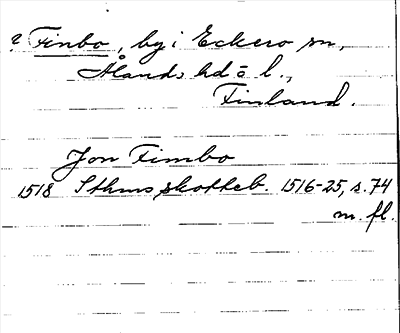 ? Finbo, by i Eckero sn,
Ålands hd o l.,
Finland.
Jon Fimbo
1518 Sthms skotteb. 1516-25, s. 74
m. fl.